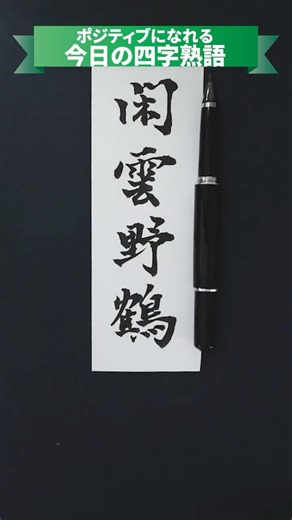 ポジティブになれる
今日の四字熟語
閑雲野鶴